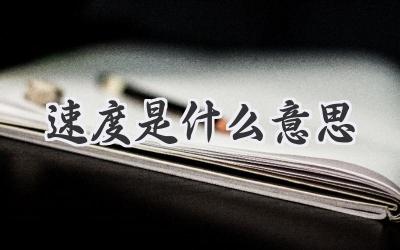 速度是什么意思